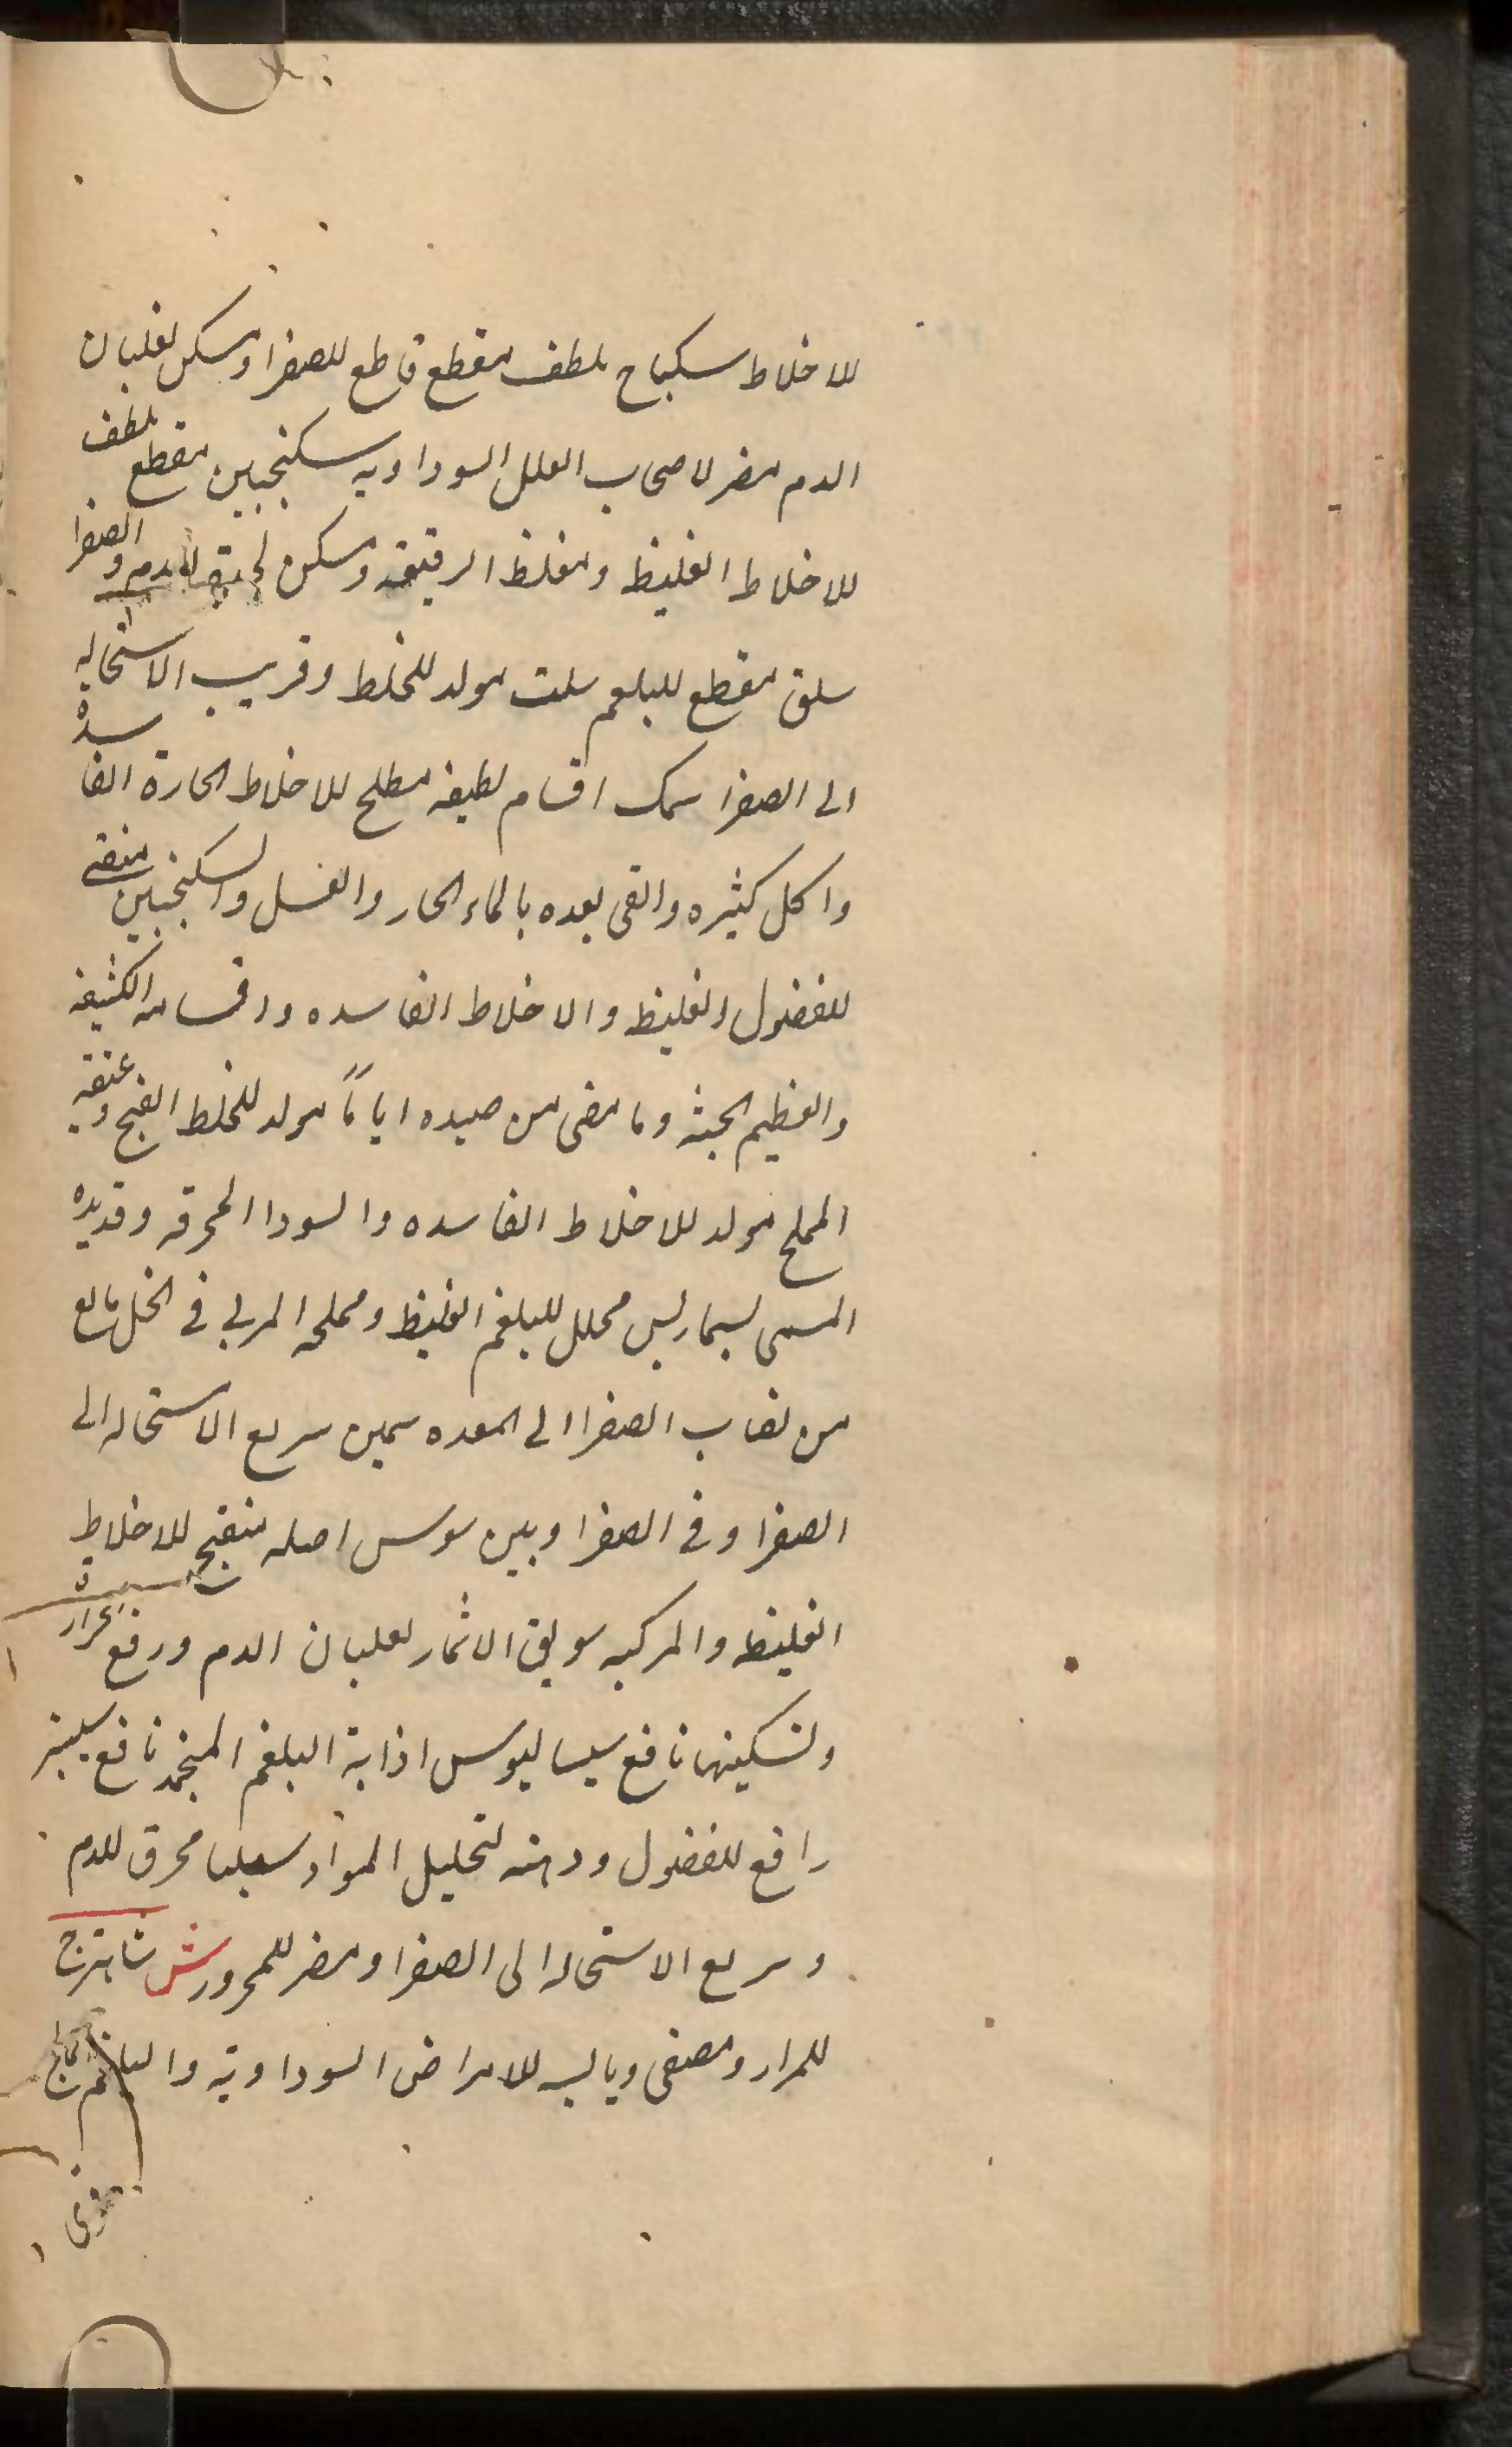 للاخلاط سكباج ملطف مقطع قاطع للصفرا ومسكن لغليان
الدم مضر لاصحاب العلل السوداويه سكنجبين مقطع ملطف
للاخلاط الغليظ ومغلظ الرقيقه ومسكن لحدة الدم والصفرا
سلق مقطع للبلغم سلت مولد للخلط وقريب الاستحاله
الى الصفرا سمك اقسام لطيفه مصلح للاخلاط الحارة الفاسدة
واكل كثيره والقى بعده بالماء الحار والعسل والسكنجبين منقى
للفضول الغليظ والاخلاط الفاسده واقسامه الكثيفه
والعظيم الجثه وما مضى من صيده اياماً مولد للخلط الفج وعتقه
المملح مولد للاخلاط الفاسده والسودا المحرقه وقديده
المسمى لسمارلس محلل للبلغم الغليظ ومملحه المربى فى الخل مانع
من لعاب الصفرا الى المعده سمين سريع الاستحاله الى
الصفرا وفى الصفرا وبين سوس اصله منضج للاخلاط
الغليظ والمركبه سويق الاثمار لغليان الدم ورفع حرارة
وتسكينها نافع سيساليوس اذابة البلغم المنجمد نافع سيسنبر
رافع للفضول ودهنه لتحليل المواد سيلبا محرق للدم
وسريع الاستحاله الى الصفرا ومضر للمحرور ش شاهترج
للمرار ومصفى ويابسه للامراض السوداويه والبلغم